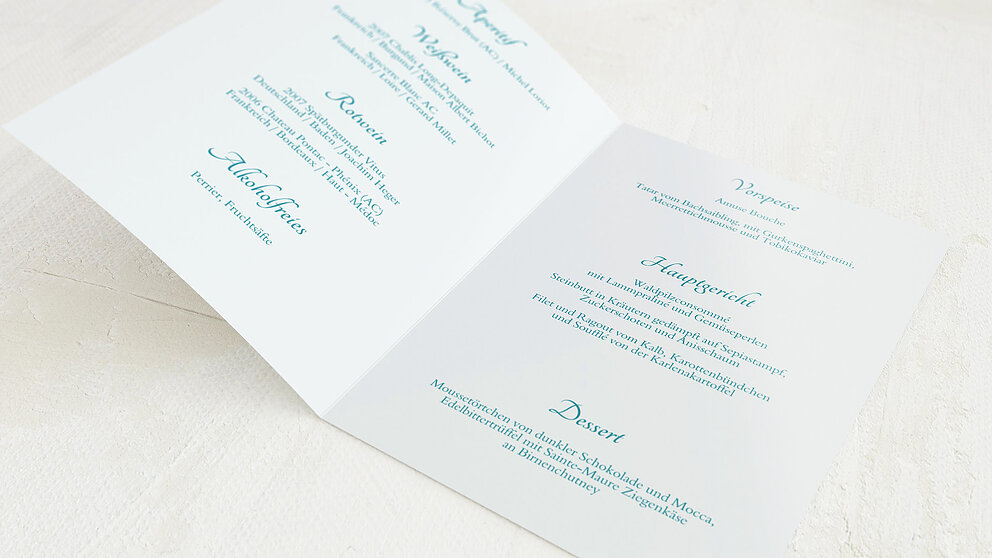 Aperitif
Brut (AC) / Michel Loriot
Weißwein
2007 Chablis Long-Depaquit
Frankreich / Burgund / Maison Albert Bichot
Sancerre Blanc AC
Frankreich / Loire / Gerard Millet
Rotwein
2007 Spätburgunder Vitus
Deutschland / Baden / Joachim Heger
2006 Chateau Pontac - Phénix (AC)
Frankreich / Bordeaux / Haut - Médoc
Alkoholfreies
Perrier, Fruchtsäfte
Vorspeise
Amuse Bouche
Tatar vom Bachsaibling, mit Gurkenspaghettini,
Meerrettichmousse und Tobikokaviar
Hauptgericht
Waldpilzconsommé
mit Lammpraliné und Gemüseperlen
Steinbutt in Kräutern gedämpft auf Sepiastampf,
Zuckerschoten und Anisschaum
Filet und Ragout vom Kalb, Karottenbündchen
und Soufflé von der Karlenakartoffel
Dessert
Moussetörtchen von dunkler Schokolade und Mocca,
Edelbittertrüffel mit Sainte-Maure Ziegenkäse
an Birnenchutney